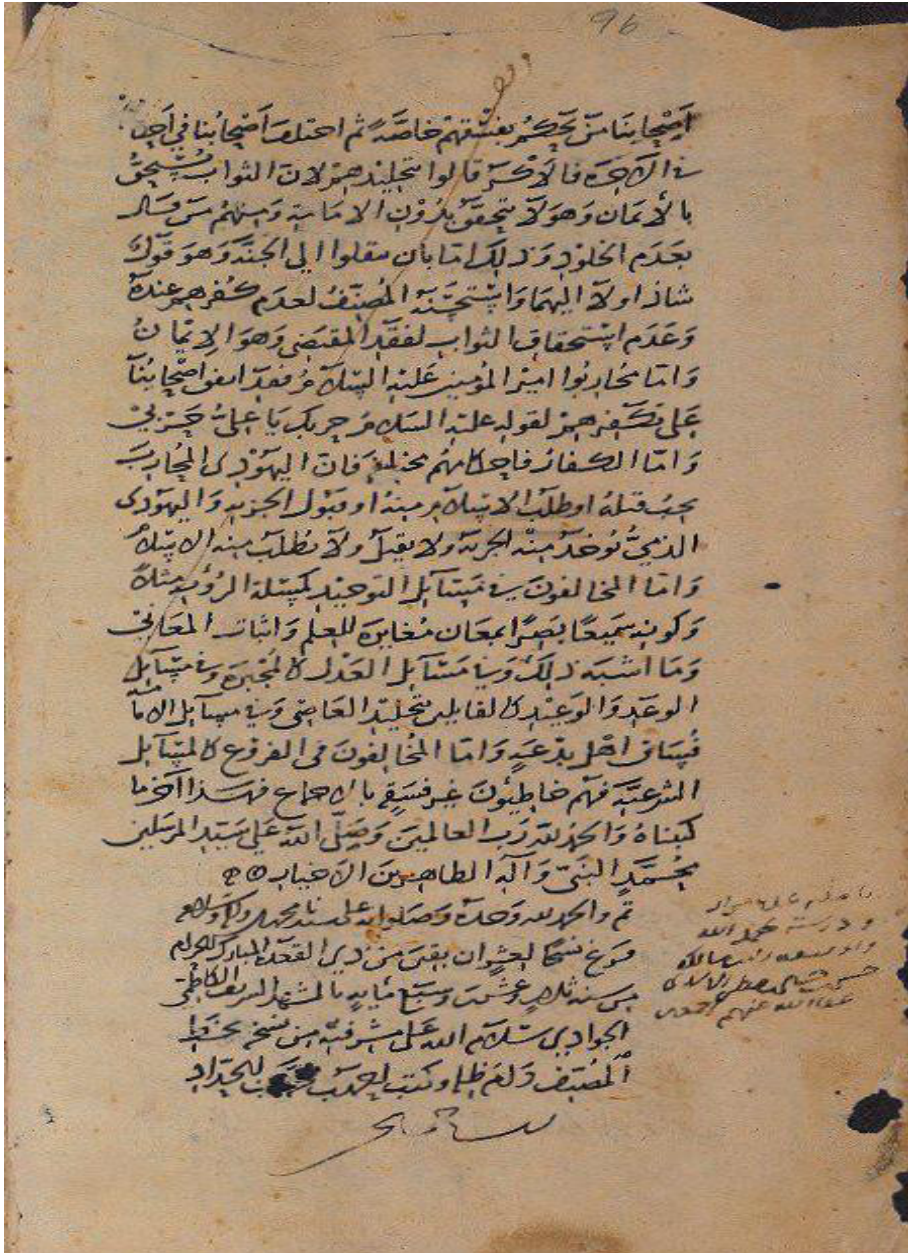 96
أصحابنا من يحكم بفسقهم خاصة ثم اختلف أصحابنا في أحكامهم
في الآخرة فالأكثر قالوا بتخليدهم لأن الثواب يستحق
بالأيمان وهو لا يتحقق بدون الامامة ومنهم من قال
بعدم الخلود وذلك اما بان ينقلوا الى الجنة وهو قول
شاذ او لا اليهما واستحسنه المصنف لعدم كفرهم عنده
وعدم استحقاق الثواب لفقد المقتضى وهو الإيمان
واما محاربوا امير المؤمنين عليه السلام فقد اتفق أصحابنا
على تكفيرهم لقوله عليه السلام حربك يا علي حربي
واما الكفار فاحكامهم مختلفة فان اليهودى المحارب
يجب قتله او طلب الاسلام منه او قبول الجزية واليهودى
الذمي تؤخذ منه الجزية ولا يقتل ولا يطلب منه الاسلام
واما المخالفون في مسائل التوحيد كمسئلة الرؤية مثلا
وكونه سميعا بصيرا بمعان مغايرة للعلم واثبات المعاني
وما اشبه ذلك وفي مسائل العدل كالمجبرة وفي مسائل
الوعد والوعيد كالقايلين بتخليد العاصى وفي مسائل الامامة
فساق اهل بدعة واما المخالفون في الفروع كالمسائل
الشرعية فهم خاطئون غير فسقة بالاجماع فهذا آخر ما
كتبناه والحمد لله رب العالمين وصلى الله على سيد المرسلين
محمد النبي وآله الطاهرين الاخيار
تم والحمد لله وحده وصلواته على سيدنا محمد وآله وسلامه
فرغ نسخا لعشر ان بقين من ذي القعدة المبارك الحرام
من سنة ثلاث وعشرين وسبع مائة بالمشهد الشريف الكاظمي
الجوادي سلام الله على مشرفيه من نسخة بخط
المصنف دام ظله وكتب احمد بن الحداد
ودرسته بحمد الله
عفا الله عنهم